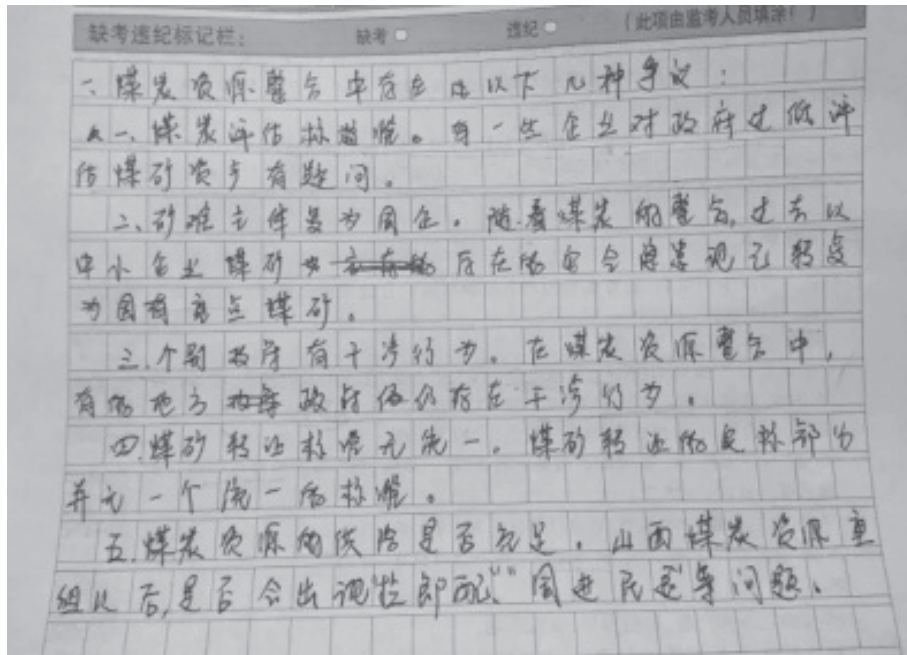 缺考违纪标记栏： 缺考 违纪 （此项由监考人员填涂！）
一、煤炭资源整合中存在以下几种争议：
一、煤炭评估标准。有一些企业对政府过低评
估煤矿资产有疑问。
二、矿难主体变为国企。随着煤炭的整合，过去以
中小企业煤矿存在的安全隐患现已转变
为国有重点煤矿。
三、个别政府有干涉行为。在煤炭资源整合中，
有的地方政府仍存在干涉行为。
四、煤矿转让标准无统一。煤矿转让的目标部分
并无一个统一的标准。
五、煤炭资源的供给是否充足。山西煤炭资源重
组以后，是否会出现“拉郎配”、“国进民退”等问题。